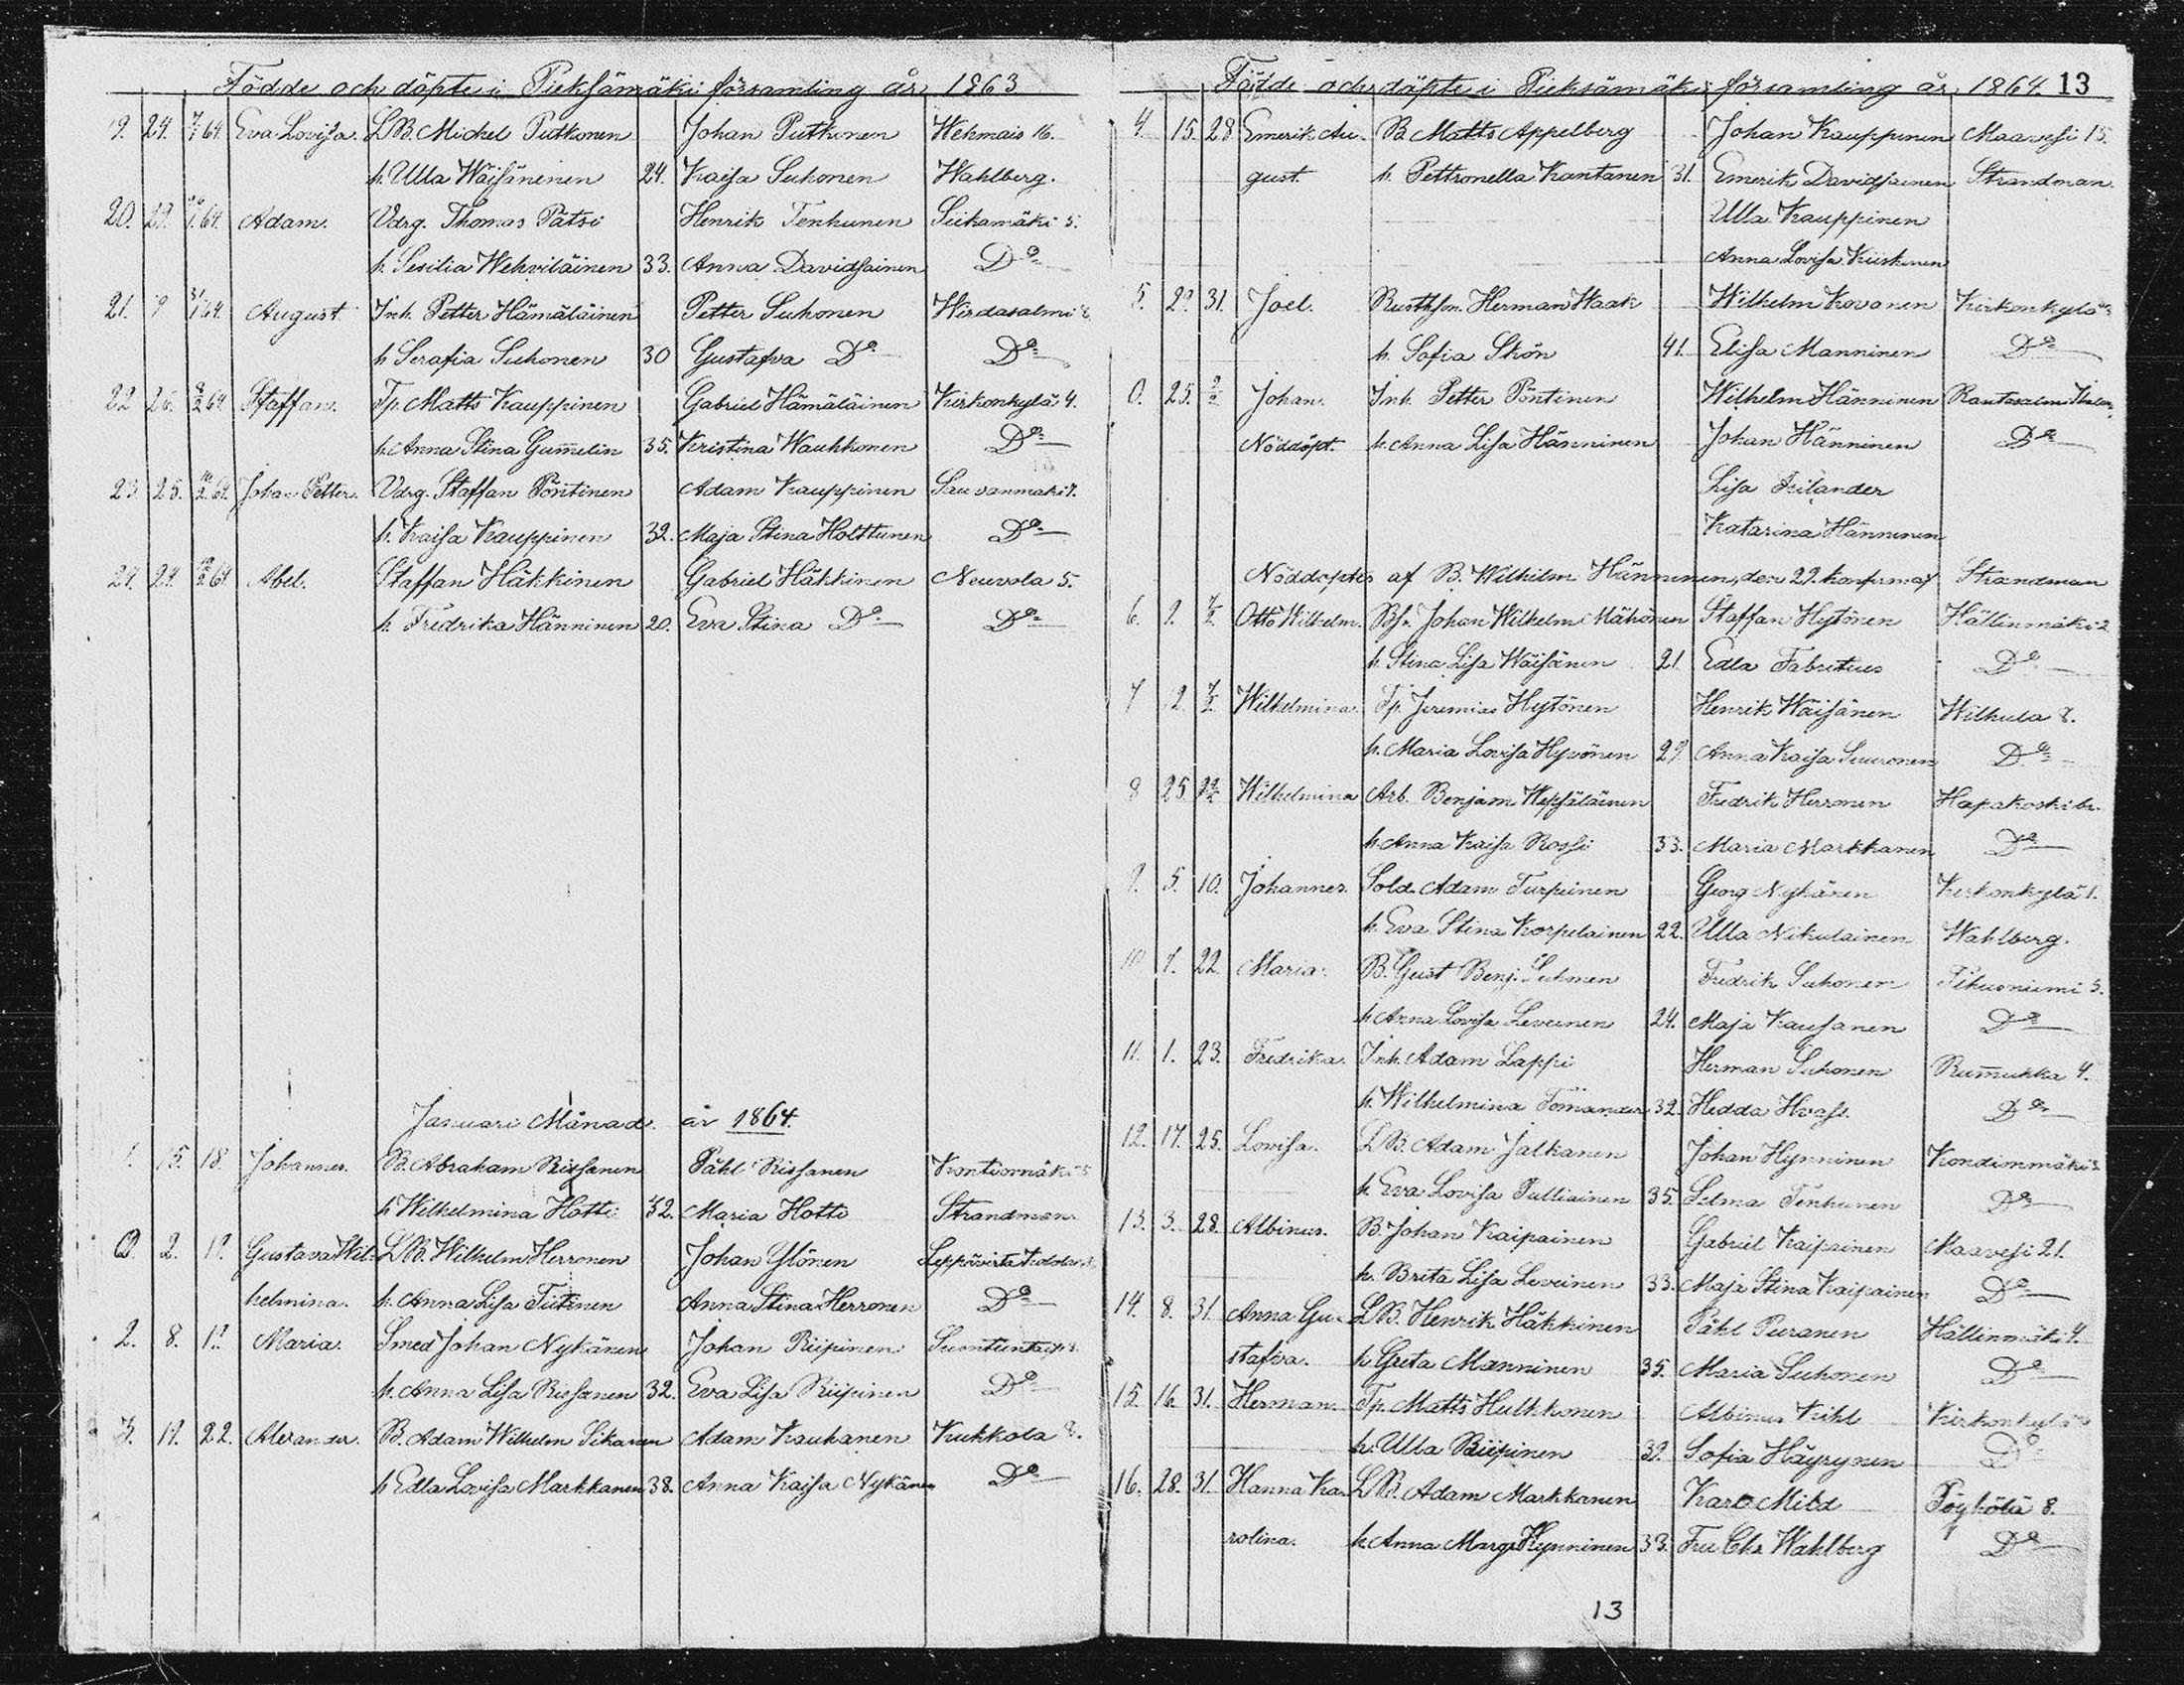 Födde och döpte i Pieksämäki församling år 1863
19. 24. 7/1 64. Eva Lovisa. LB. Michel Putkonen Johan Putkonen Wehmais 16.
h. Ulla Wäisäninen 24. Kaisa Suhonen Wahlberg.
20. 29. 1.64. Adam. Vdrg. Thomas Pätsi Henrik Tenhunen Seikamäki 5.
h. Sesilia Wehviläinen 33. Anna Davidsainen Do
21. 9 31/1 64. August. Inh. Petter Hämäläinen Petter Suhonen Wirdasalmi 8.
h Serafia Suhonen 30 Gustafva Do Do
22 26. 8/2 64. Staffan. Tp. Matts Kauppinen Gabriel Hämäläinen Kirkonkylä 4.
h. Anna Stina Gum̅elin 35. Kristina Waukkonen Do
23. 25. 10/2 64. Johan Petter. Vdrg. Staffan Pöntinen Adam Kauppinen Sauvanmäki 7.
h. Kaisa Kauppinen 32. Maja Stina Holttunen Do
24. 24. 12/2 64. Abel. Staffan Häkkinen Gabriel Häkkinen Neuvola 5.
h. Fredrika Hänninen 20. Eva Stina Do Do
Januari Månad. år 1864.
1. 15. 18. Johannes. B. Abraham Rissanen Påhl Rissanen Kontiomäki 5
h Wilhelmina Hotti 32. Maria Hotti Strandman
O. 2. 19. Gustava Wil- LB. Wilhelm Herronen Johan Ylönen Leppävirta
helmina. h. Anna Lisa Tiitinen Anna Stina Herronen Do
2. 8. 19. Maria. Smed Johan Nykänen Johan Riipinen
h. Anna Lisa Rissanen 32. Eva Lisa Riipinen Do
3. 19. 22. Alexander. B. Adam Wilhelm Sikanen Adam Kaukanen Kukkola 8.
h Edla Lovisa Markkanen 38. Anna Kaisa Nykänen Do
Födde och döpte i Pieksämäki församling år 1864. 13
4. 15. 28 Emerik Au- B. Matts Appelberg Johan Kauppinen Maavesi 15.
gust. h. Pettronella Kantanen 31. Emerik Davidsainen Strandman.
Ulla Kauppinen
Anna Lovisa Kiiskinen
5. 29. 31. Joel. Rusthsn. Herman Waak Wilhelm Kovanen Kirkonkylä
h. Sofia Skön 41. Elisa Manninen Do
O. 25. 2/2 Johan. Inh. Petter Pöntinen Wilhelm Hänninen Rantasalmi
Nöddöpt. h. Anna Lisa Hänninen Johan Hänninen Do
Lisa Frilander
Katarina Hänninen
Nöddöptes af B. Wilhelm Hänninen, den 29. konfirm. af Strandman
6. 9. 7/2 Otto Wilhelm. Bs. Johan Wilhelm Mähönen Staffan Hytönen Hällinmäki 2
h. Stina Lisa Wäisänen 21. Edla Fabritius Do
7 12. 7/2 Wilhelmina. Tp. Jeremias Hytönen Henrik Wäisänen Wilkula 8.
h. Maria Lovisa Hyvönen 29. Anna Kaisa Suuronen Do
8 25 Wilhelmina Arb. Benjam Wepsäläinen Fredrik Herronen Hapakoski br.
h. Anna Kaisa Rossi 33. Maria Markkanen Do
9. 5. 10. Johannes. Sold. Adam Turpeinen Georg Nykänen Kirkonkylä 1.
h. Eva Stina Korpelainen 22. Ulla Nikulainen Wahlberg.
10 7. 22. Maria. B. Gust Benj. Suhonen Fredrik Suhonen Tihusniemi 5.
h Anna Lovisa Leveinen 24. Maja Kausanen Do
11. 1. 23. Fredrika. Inh. Adam Lappi Herman Suhonen Rum̅ukka 4.
h. Wilhelmina Tömander 32. Hedda Do
12. 17. 25. Lovisa. LB. Adam Jalkanen Johan Hynninen Kondinmäki
h. Eva Lovisa Pulliainen 35. Selma Tenhunen Do
13. 3. 28. Albinus. B. Johan Kaipainen Gabriel Kaipainen Maavesi 21.
h. Brita Lisa Leveinen 33. Maja Stina Kaipainen Do
14. 8. 31. Anna Gu- LB. Henrik Häkkinen Påhl Puranen Hällinmäki 4.
stafva. h Greta Manninen 35. Maria Suhonen Do
15. 16. 31. Herman. Tp. Matts Hulkkonen Albinus Kihl Kirkonkylä
h. Ulla Riipinen 32. Sofia Häyrynen Do
16. 28. 31. Hanna Ka- LB. Adam Markkanen Karo Mild Pöyhölä 8.
rolina. h. Anna Margr Hynninen 33. Fru Chr Wahlberg Do
13